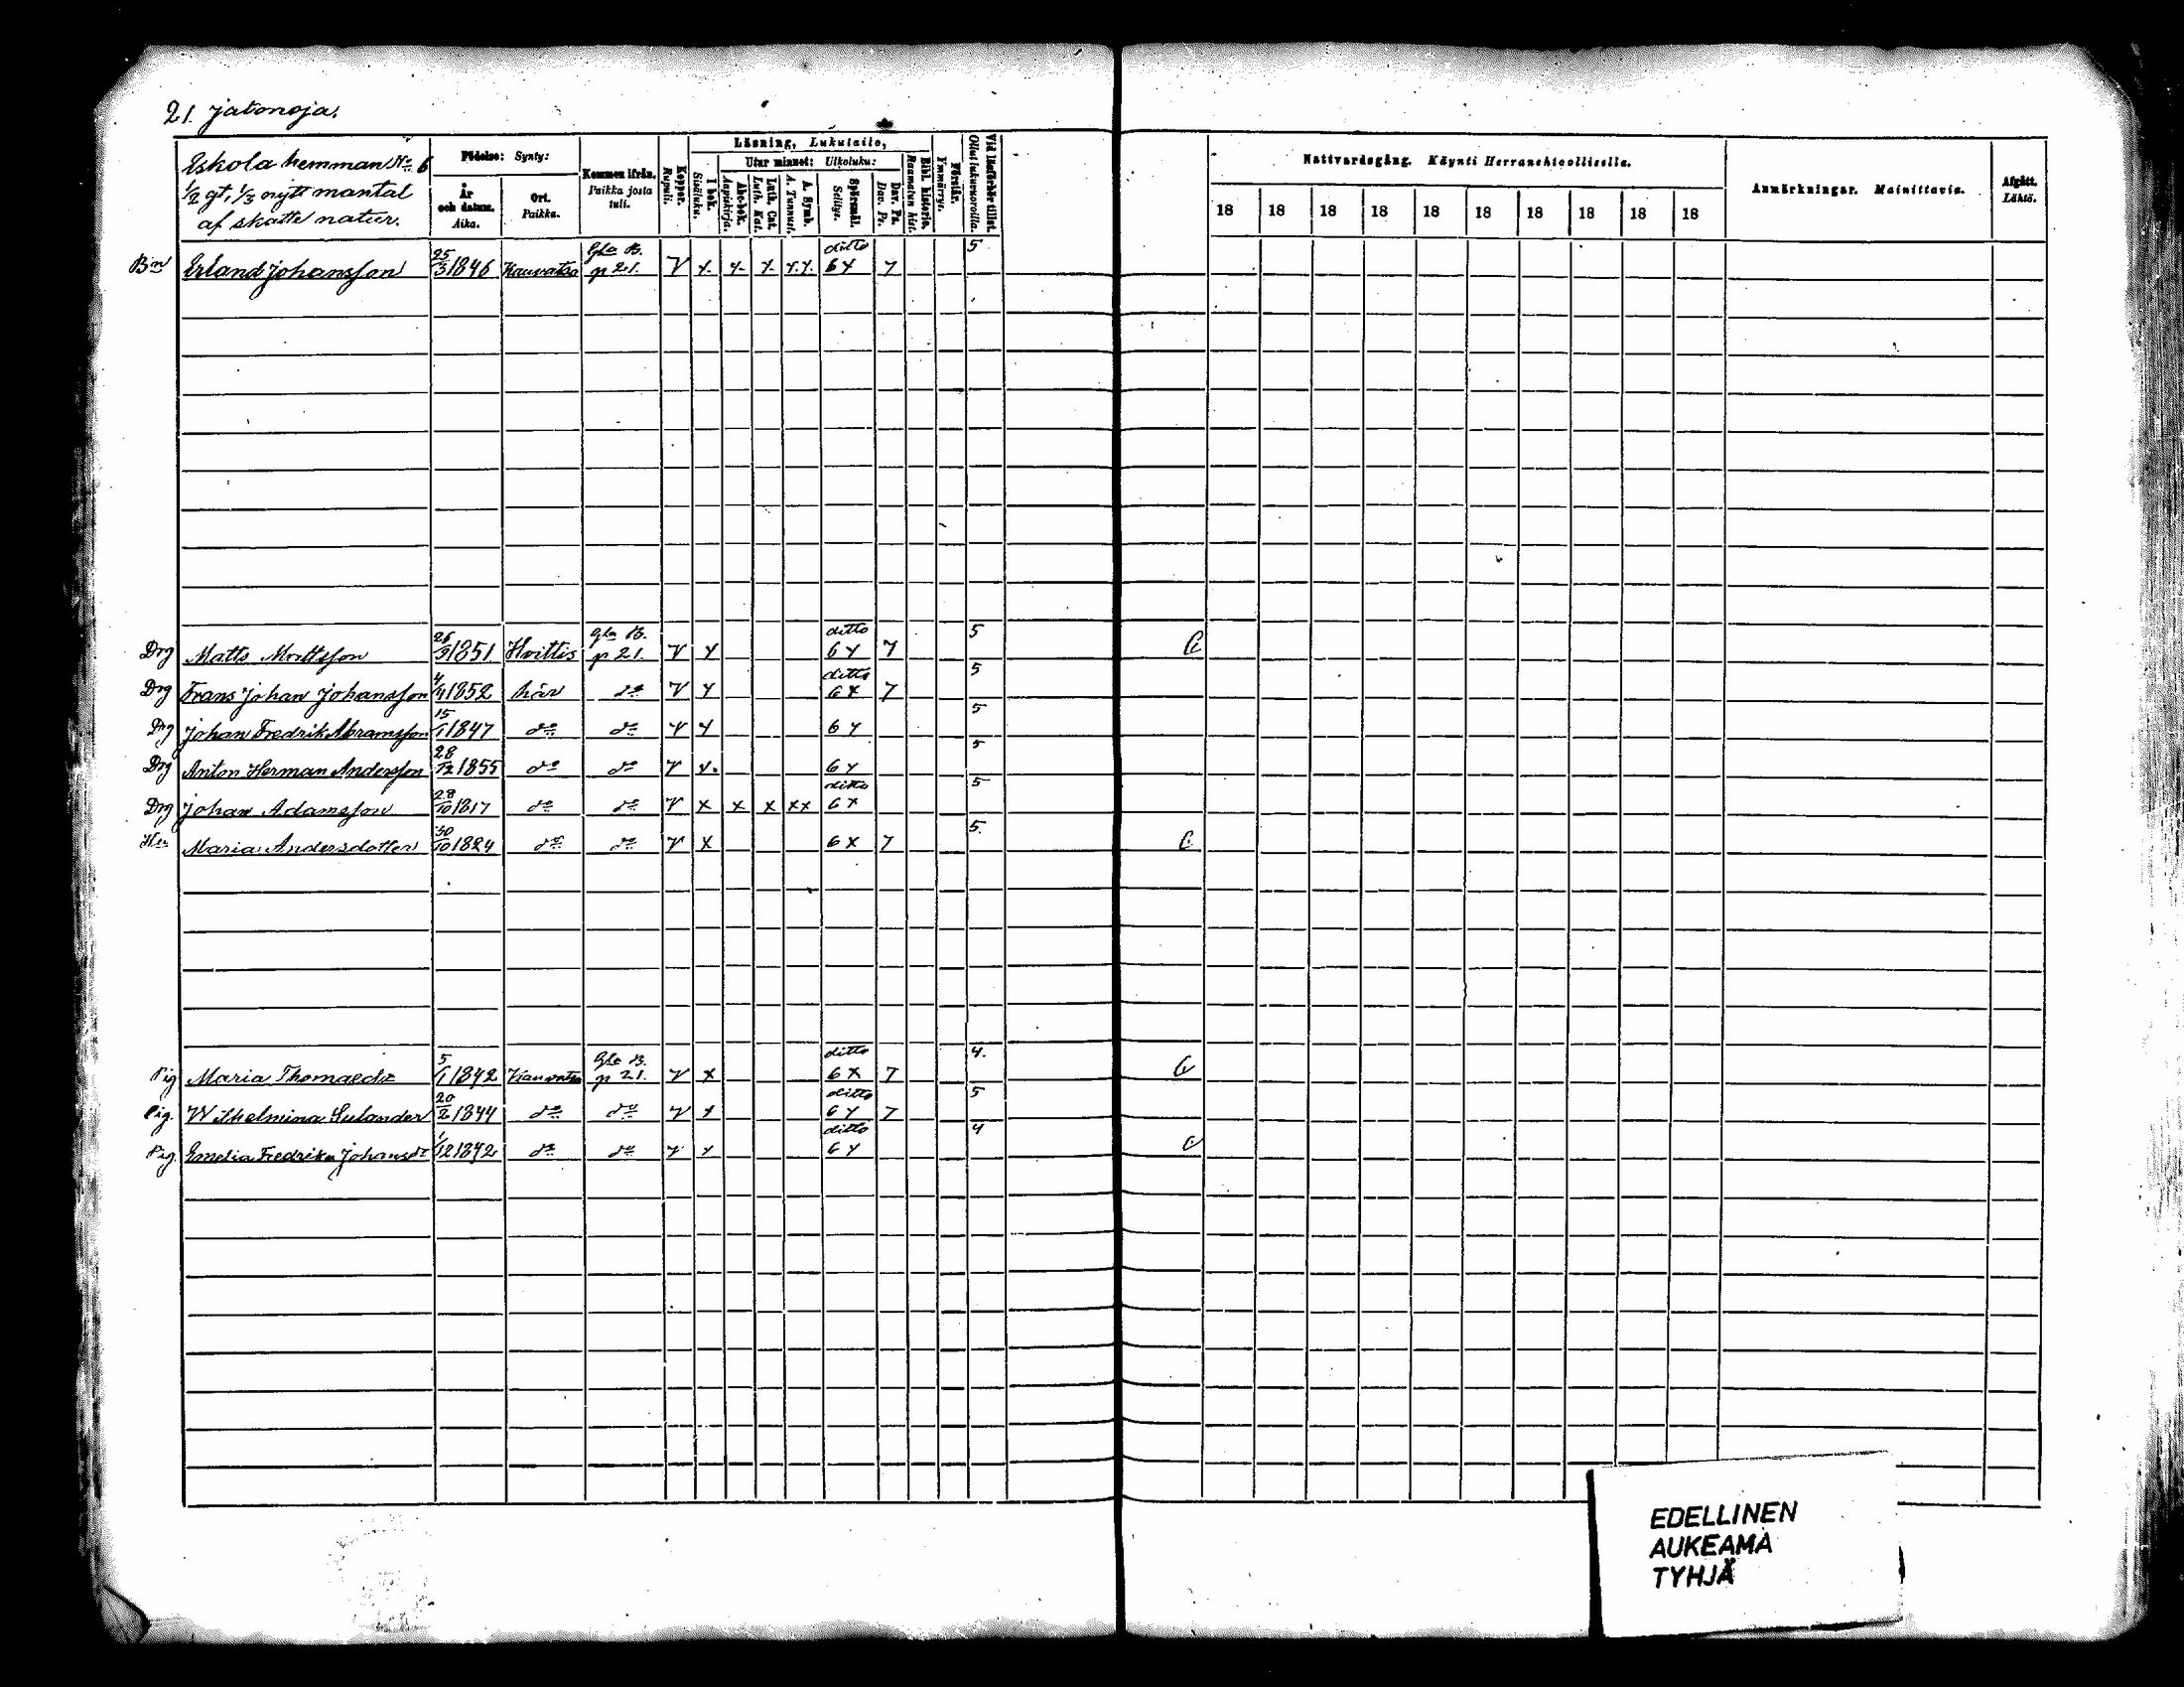 21. Jatonoja.
Eskola hemman No 6
1/2 gt, 1/3 nytt mantal
af skatte natur.
Födelse: Synty:
År och datum. Aika.
Ort. Paikka.
Kommen ifrån. Paikka josta tuli.
Koppor. Rupuli.
Läsning, Lukutaito,
I bok. Sisäluku.
Utur minnet: Ulkoluku:
Abc-bok. Aapiskirja.
Luth. Cat. Luth. Kat.
A. Symb. A. Tunnust.
Spörsmål. Selitys.
Dav. Ps. Dav. Ps.
Bibl. historie. Raamatun hist.
Förstår. Ymmärrys.
Vid läsförhör tillst. Ollut lukuvuoroilla.
Nattvardsgång. Käynti Herranehtoollisella.
18 18 18 18 18 18 18 18 18 18
Anmärkningar. Mainittavia.
Afgått. Lähtö.
Bn Erland Johansson 25/3 1846 Kauvatsa Gla B. p 21. V x x x x.x. ditto 6 x 7 5
Drg Matts Mattsson 26/9 1851 Hvittis gla B. p 21. V x ditto 6 x 7 5
Drg Frans Johan Johansson 4/4 1852 här do V x ditto 6 x 7 5
Drg Johan Fredrik Abramsson 15/1 1847 do do V x 6 x 5
Drg Anton Herman Andersson 28/12 1855 do do V x. 6 x 5
Drg Johan Adamsson 28/10 1817 do do V x x x xx ditto 6 x 5
Maria Andersdotter 30/10 1824 do do V x 6 x 7 5.
Pig Maria Thomasdr 5/1 1842 Kauvatsa Gla B. p 21. V x ditto 6 x 7 4.
Pig. Wilhelmina Sulander 20/2 1844 do do V x ditto 6 x 7 5
Pig. Emelia Fredrika Johansdr 1/12 1842 do do V x ditto 6 x 4
EDELLINEN
AUKEAMA
TYHJÄ